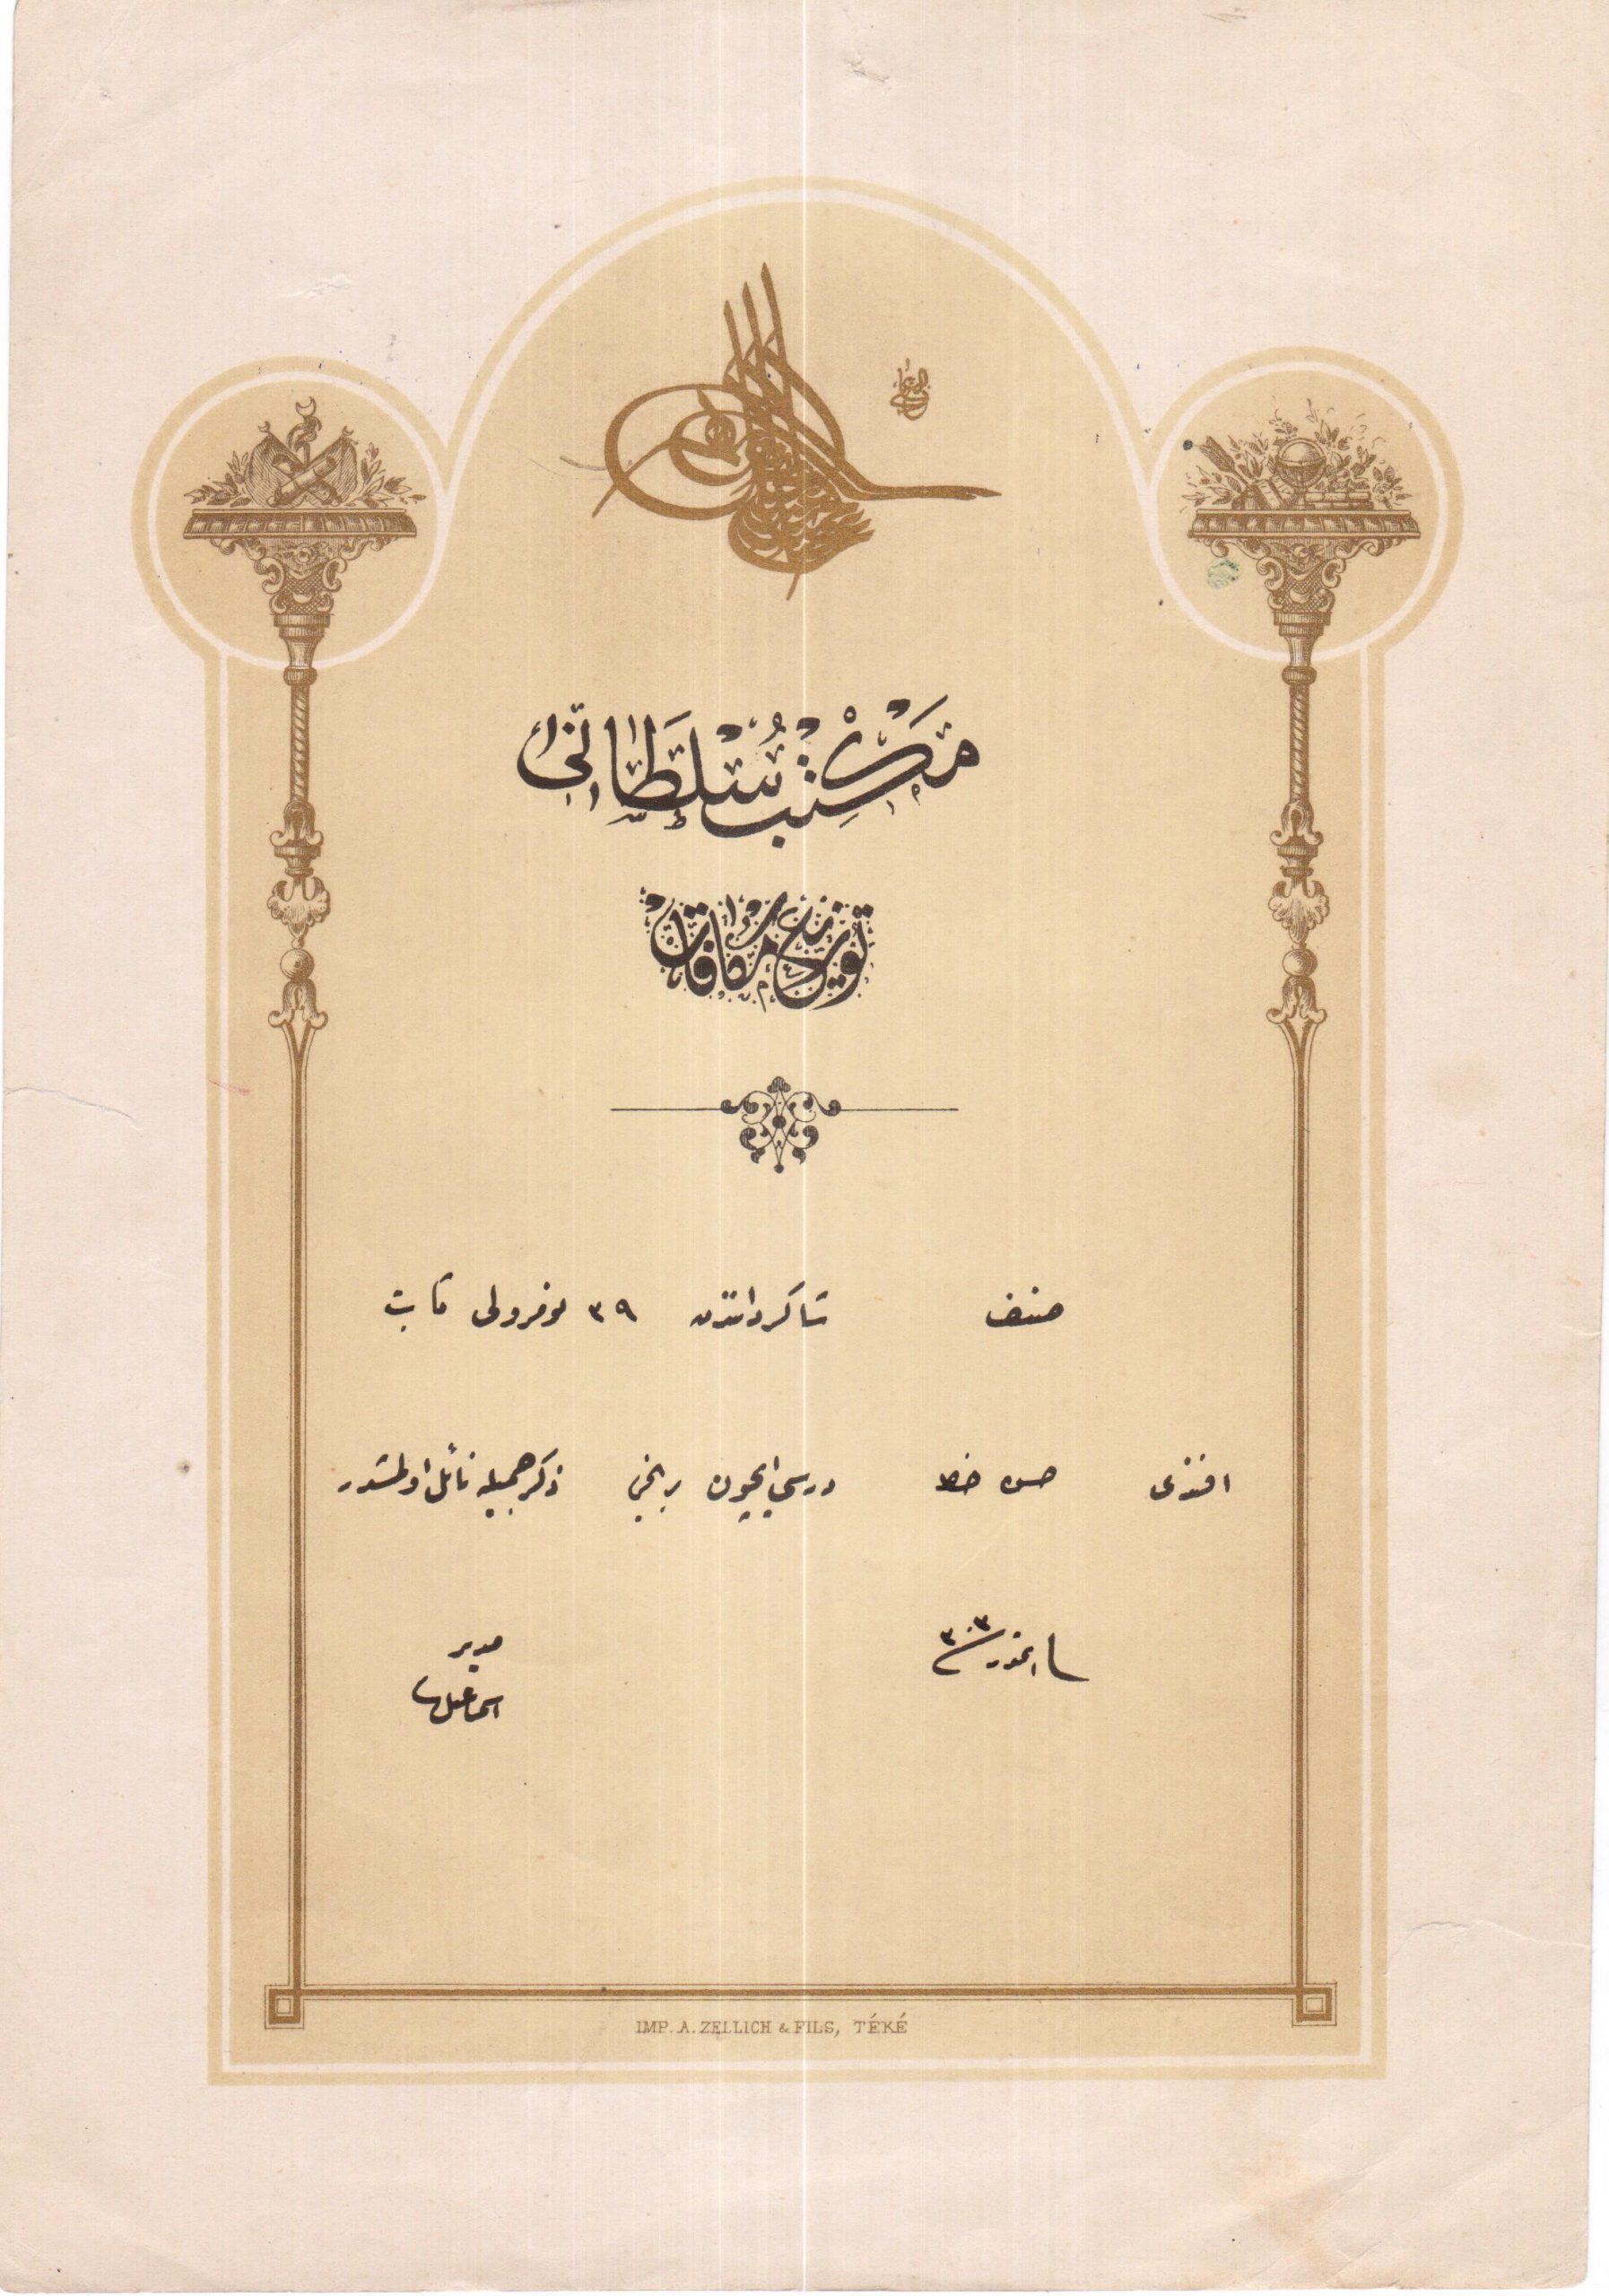 مكتب سلطانی
توزيع مكافات
صنف شاكرداندن ٣٩ نومرولی ثابت
افندی حسن خط درسی ایچون برنجی ذكر جمیله نائل اولمشدر
٣٠٣
مدیر
اسماعیل
IMP. A. ZELLICH & FILS, TÉKÉ